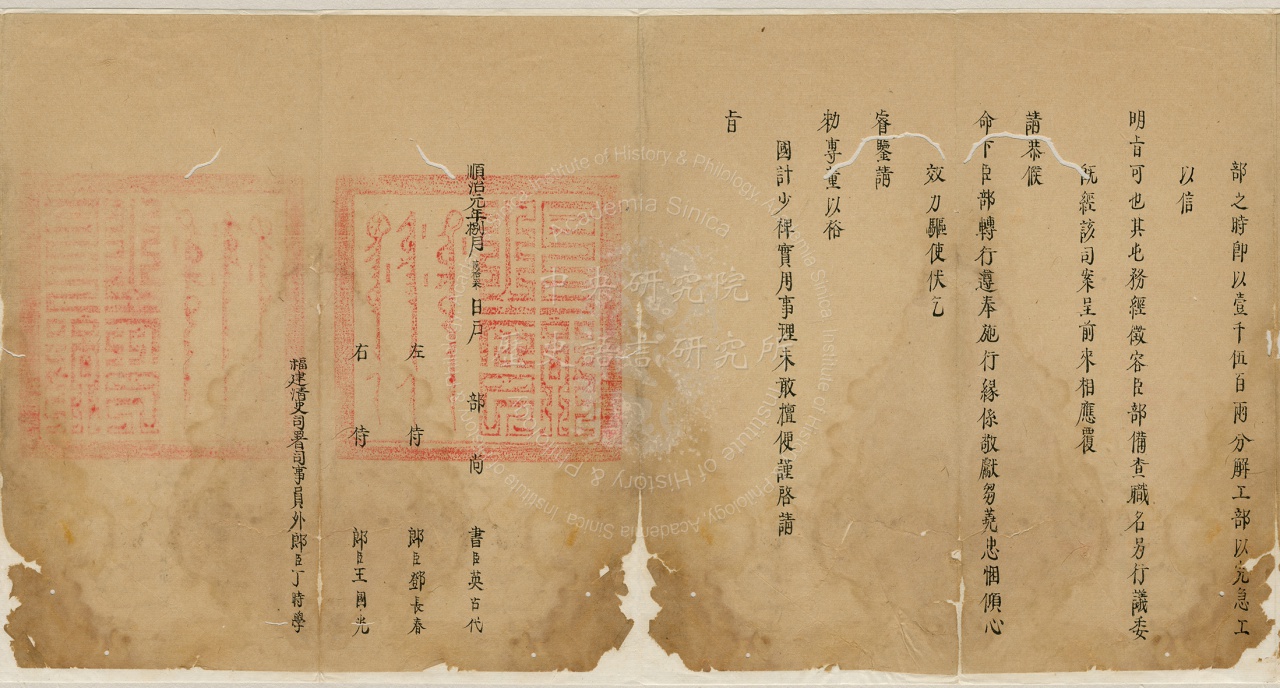 部之時即以壹千伍百兩分解工部以完急工
以信
明旨可也其屯務經徵容臣部備查職名另行議委
既經該司案呈前來相應覆
請恭候
命下臣部轉行遵奉施行緣係敬獻芻蕘忠悃傾心
效力驅使伏乞
睿鑒請
勑專董以裕
國計少裨實用事理未敢擅便謹啓請
旨
順治元年捌月 日戶部尚書臣英古代
左侍郎臣鄧長春
右侍郎臣王國光
福建清吏司署司事員外郎臣丁時學
中央研究院
歷史語言研究所
Institute of History & Philology, Academia Sinica